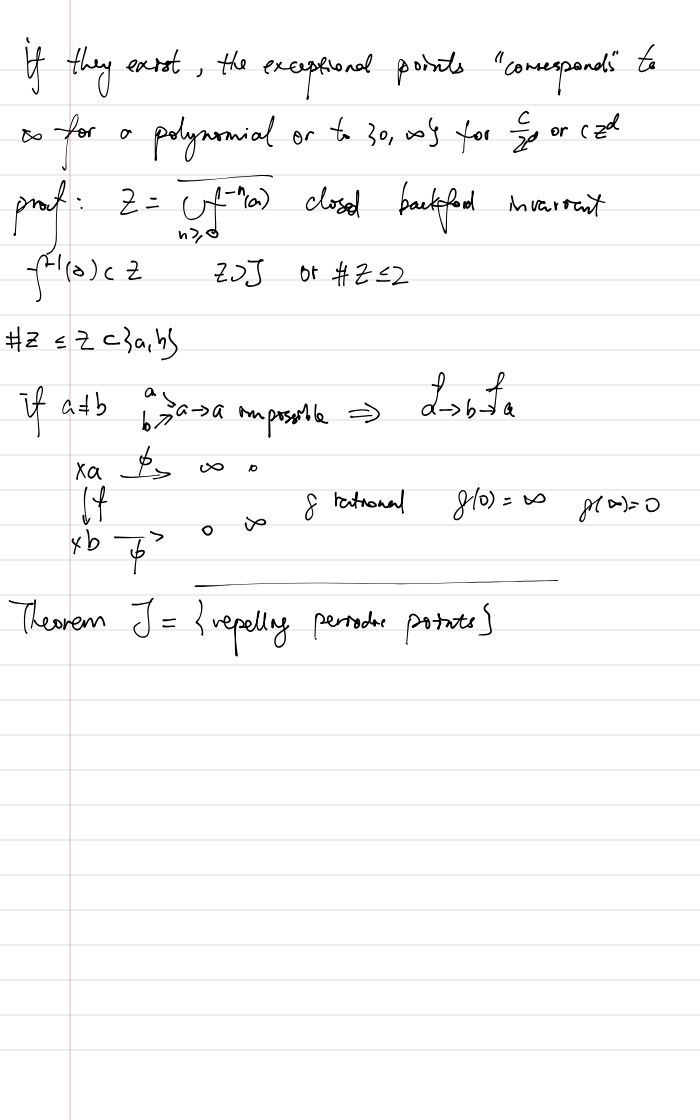 if they exist, the exceptional points "corresponds" to
∞ for a polynomial or to {0, ∞} for c/z^d or cz^d
proof: Z = \overline{⋃_{n≥0} f^{-n}(a)} closed backford invariant
f^{-1}(z) ⊂ Z Z ⊃ J or #Z ≤ 2
#Z ≤ Z ⊂ {a, b}
if a ≠ b a b → a → a impossible ⇒ a →^f b →^f a
xa →^ϕ ∞ 0
↓f g rational g(0) = ∞ g(∞) = 0
xb →_ϕ 0 ∞
Theorem J = {repelling periodic points}